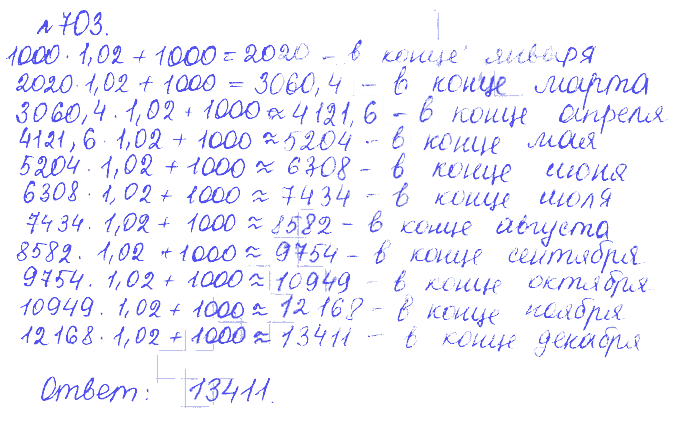 №703.
1000·1,02+1000=2020 – в конце января
2020·1,02+1000=3060,4 – в конце марта
3060,4·1,02+1000≈4121,6 – в конце апреля
4121,6·1,02+1000≈5204 – в конце мая
5204·1,02+1000≈6308 – в конце июня
6308·1,02+1000≈7434 – в конце июля
7434·1,02+1000≈8582 – в конце августа
8582·1,02+1000≈9754 – в конце сентября
9754·1,02+1000≈10949 – в конце октября
10949·1,02+1000≈12168 – в конце ноября
12168·1,02+1000≈13411 – в конце декабря
Ответ: 13411.